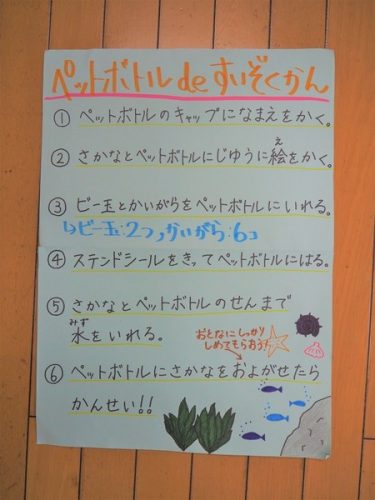 ペットボトルdeすいぞくかん
① ペットボトルのキャップになまえをかく。
② さかなとペットボトルにじゆうに絵をかく。
え
③ ビー玉とかいがらをペットボトルにいれる。
↳ビー玉:2つ、かいがら:6コ
④ ステンドシールをきってペットボトルにはる。
⑤ さかなとペットボトルのせんまで
みず
水をいれる。
おとなにしっかり
しめてもらおう!
⑥ ペットボトルにさかなをおよがせたら
かんせい!!